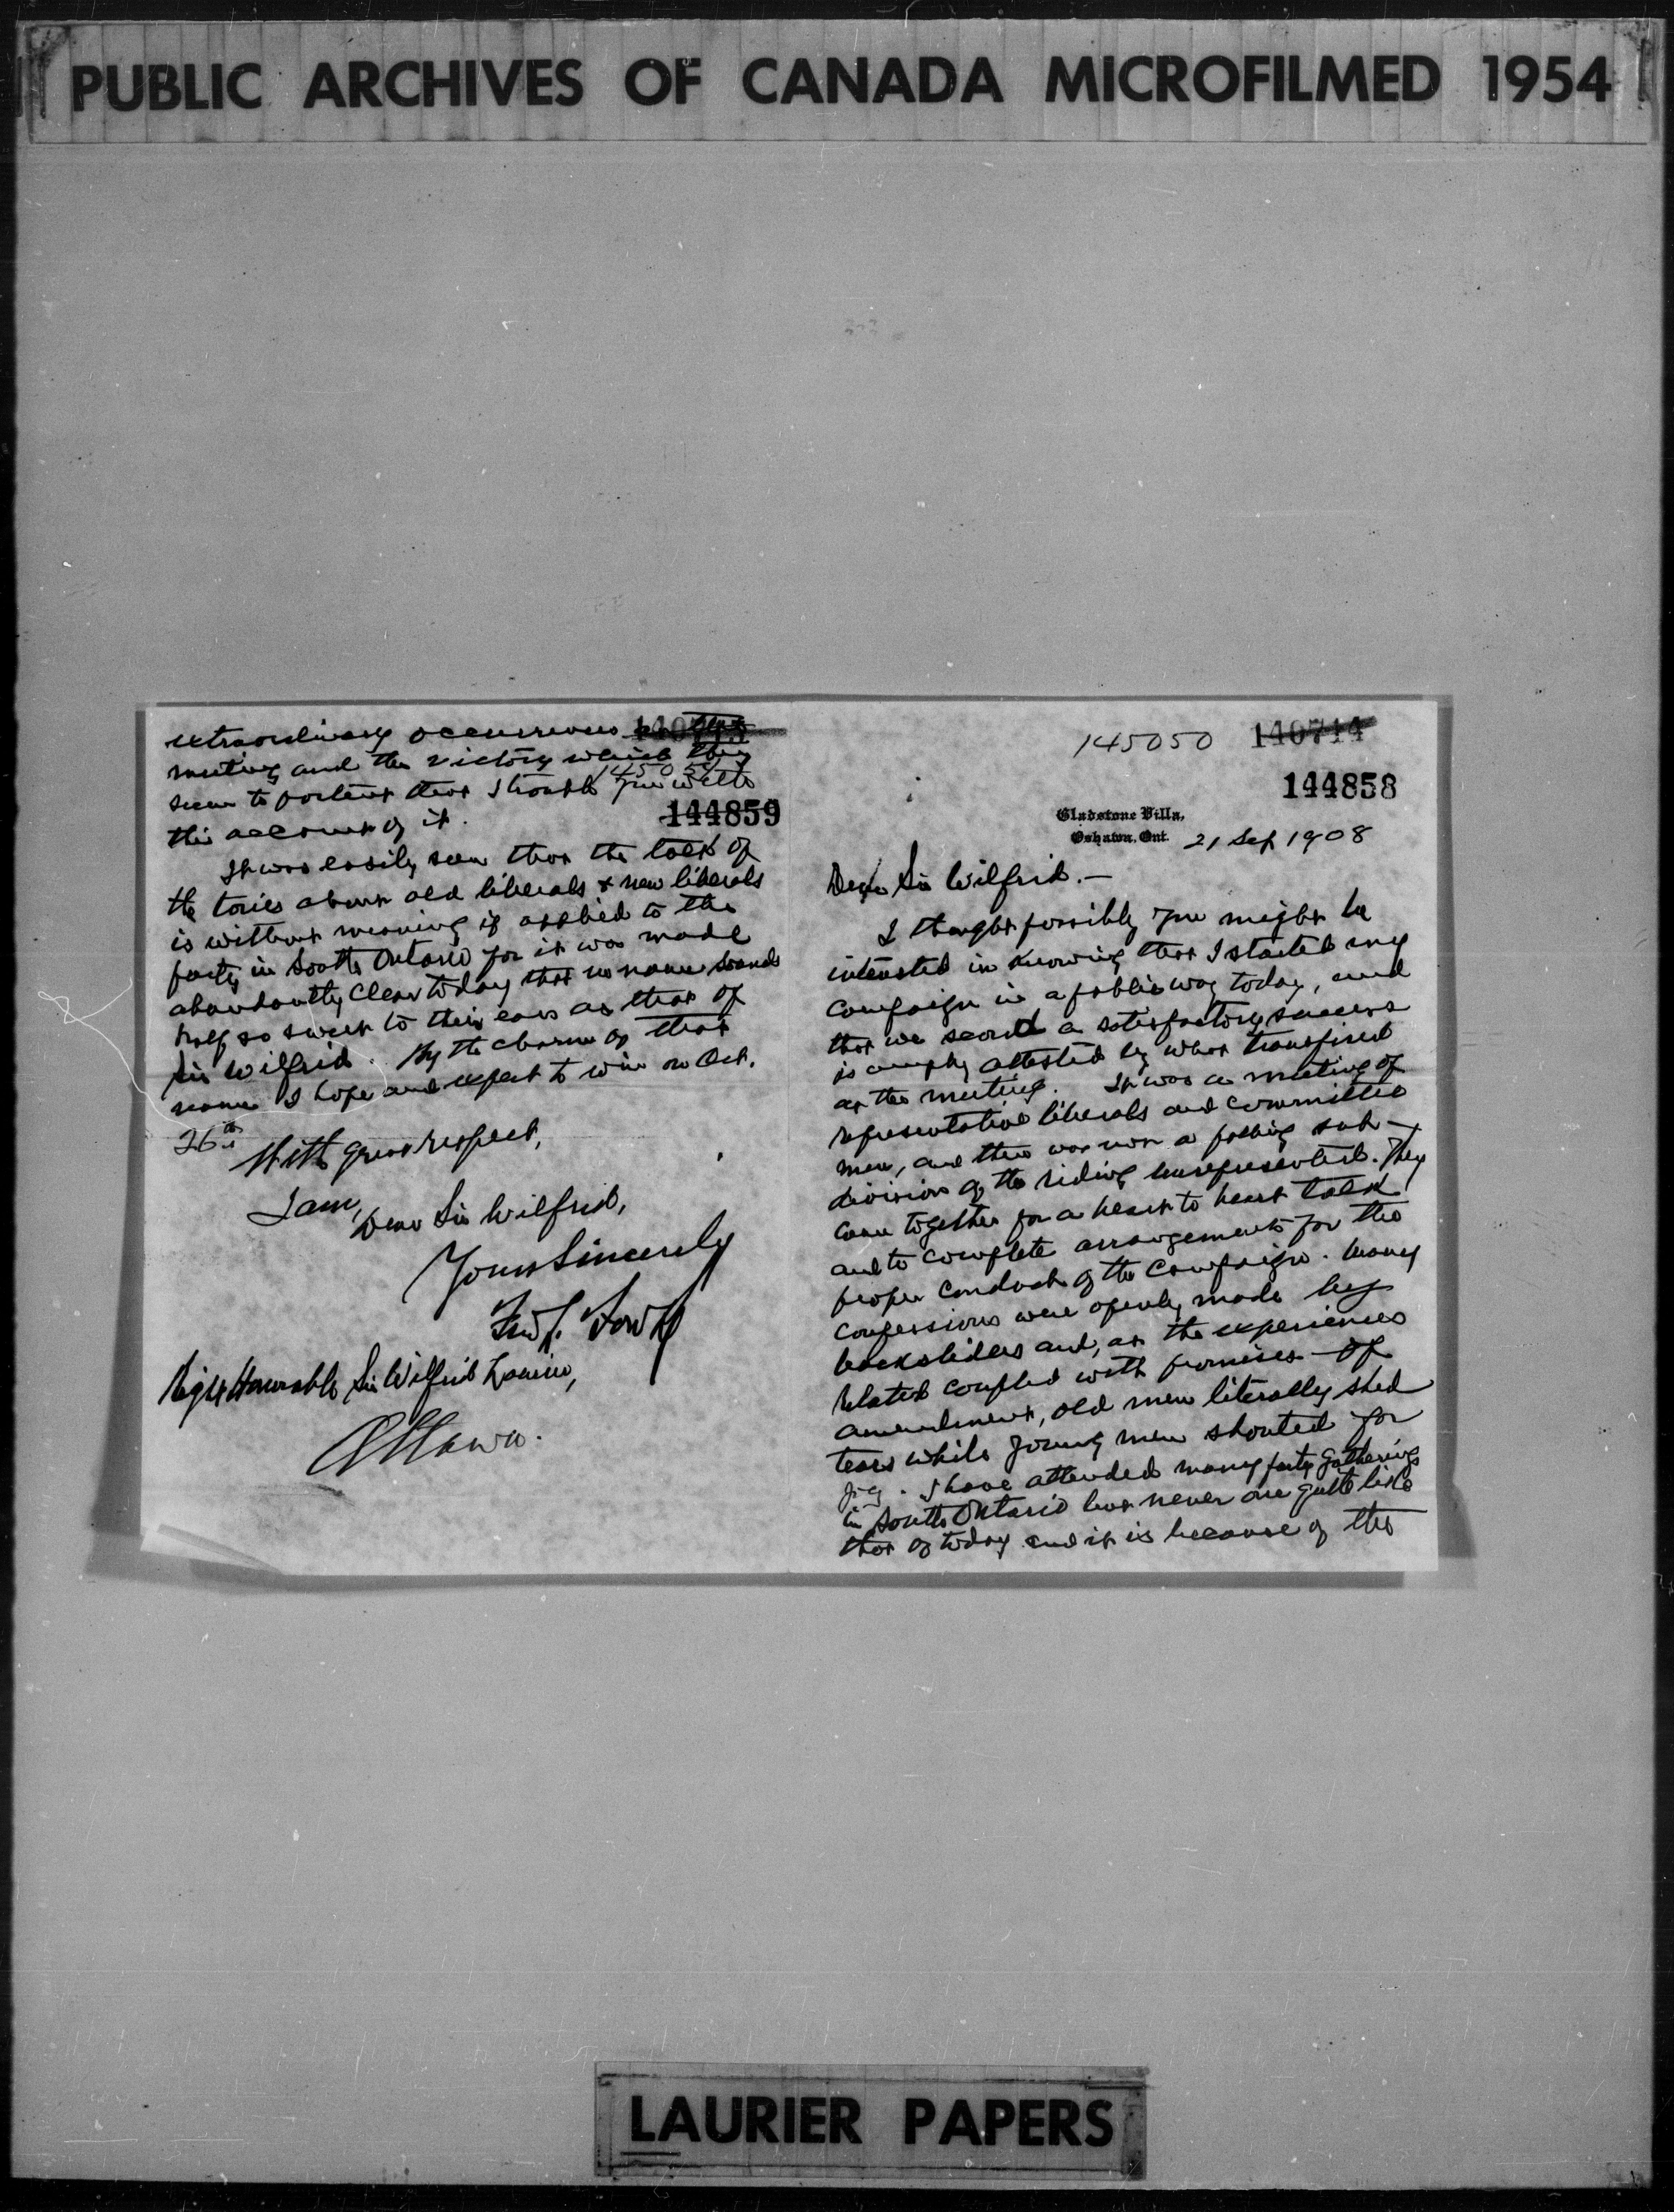 PUBLIC ARCHIVES OF CANADA MICROFILMED 1954
145050 140714
144858
Gladstone Villa,
Oshawa, Ont. 21 Sep 1908
Dear Sir Wilfrid.—
I thought possibly you might be
interested in knowing that I started my
campaign in a public way today, and
that we scored a satisfactory success
is amply attested by what transpired
at the meeting. It was a meeting of
representative liberals and committee
men, and there was not a polling sub-
division of the riding unrepresented. They
came together for a heart to heart talk
and to complete arrangements for the
proper conduct of the campaign. Many
confessions were openly made by
backsliders and, as the experiences
related coupled with promises of
amendment, old men literally shed
tears while young men shouted for
joy. I have attended many party gatherings
in South Ontario but never one quite like
that of today and it is because of the
extraordinary occurrences
meeting and the victory which they
seem to portent that I trouble you with
this account of it.
144859
It was easily seen that the talk of
the tories about old liberals & new liberals
is without meaning if applied to the
party in South Ontario for it was made
abundantly clear today that no name sounds
half so sweet to their ears as that of
Sir Wilfrid. By the charm of that
name I hope and expect to win on Oct.
26th
With great respect,
I am,
Dear Sir Wilfrid,
Yours Sincerely
Fred L. Fowke
Right Honorable Sir Wilfrid Laurier,
Ottawa.
LAURIER PAPERS